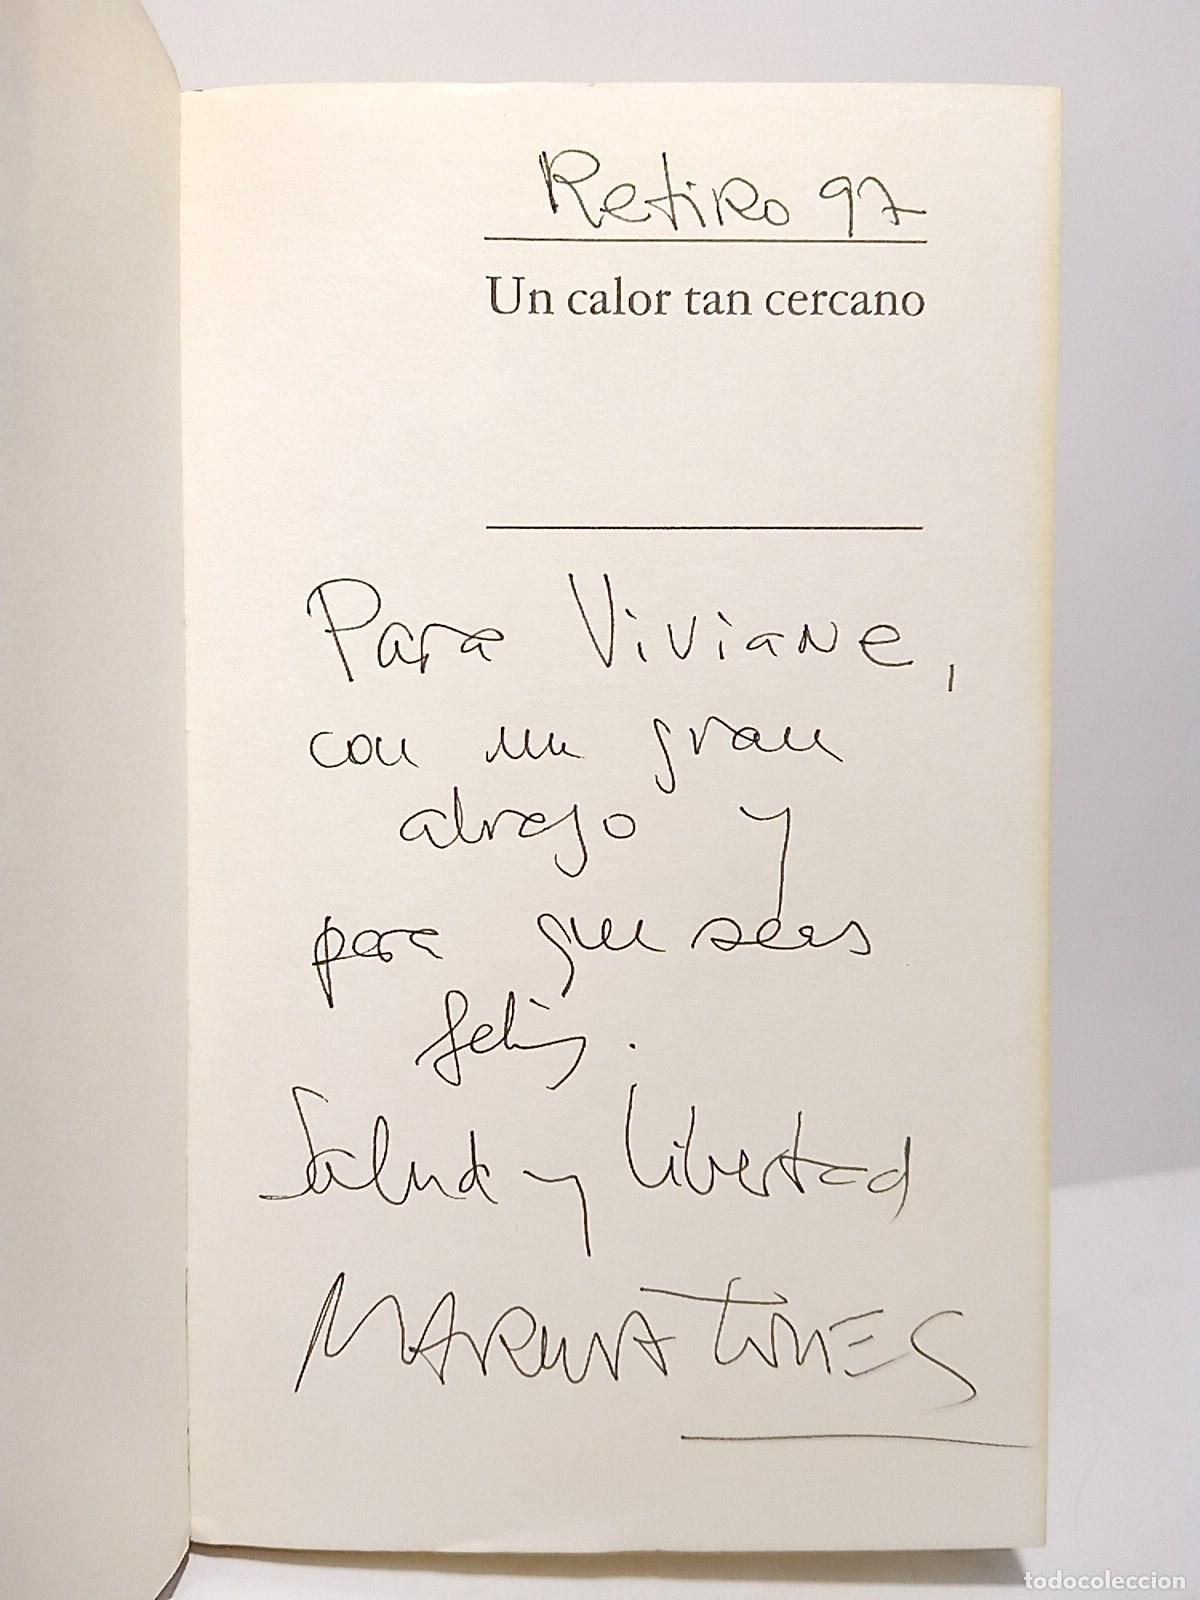 Retiro 97
Un calor tan cercano
Para Viviane,
con un gran
abrazo y
para que seas
feliz.
Salud y libertad
MARUJA TORRES
todocoleccion